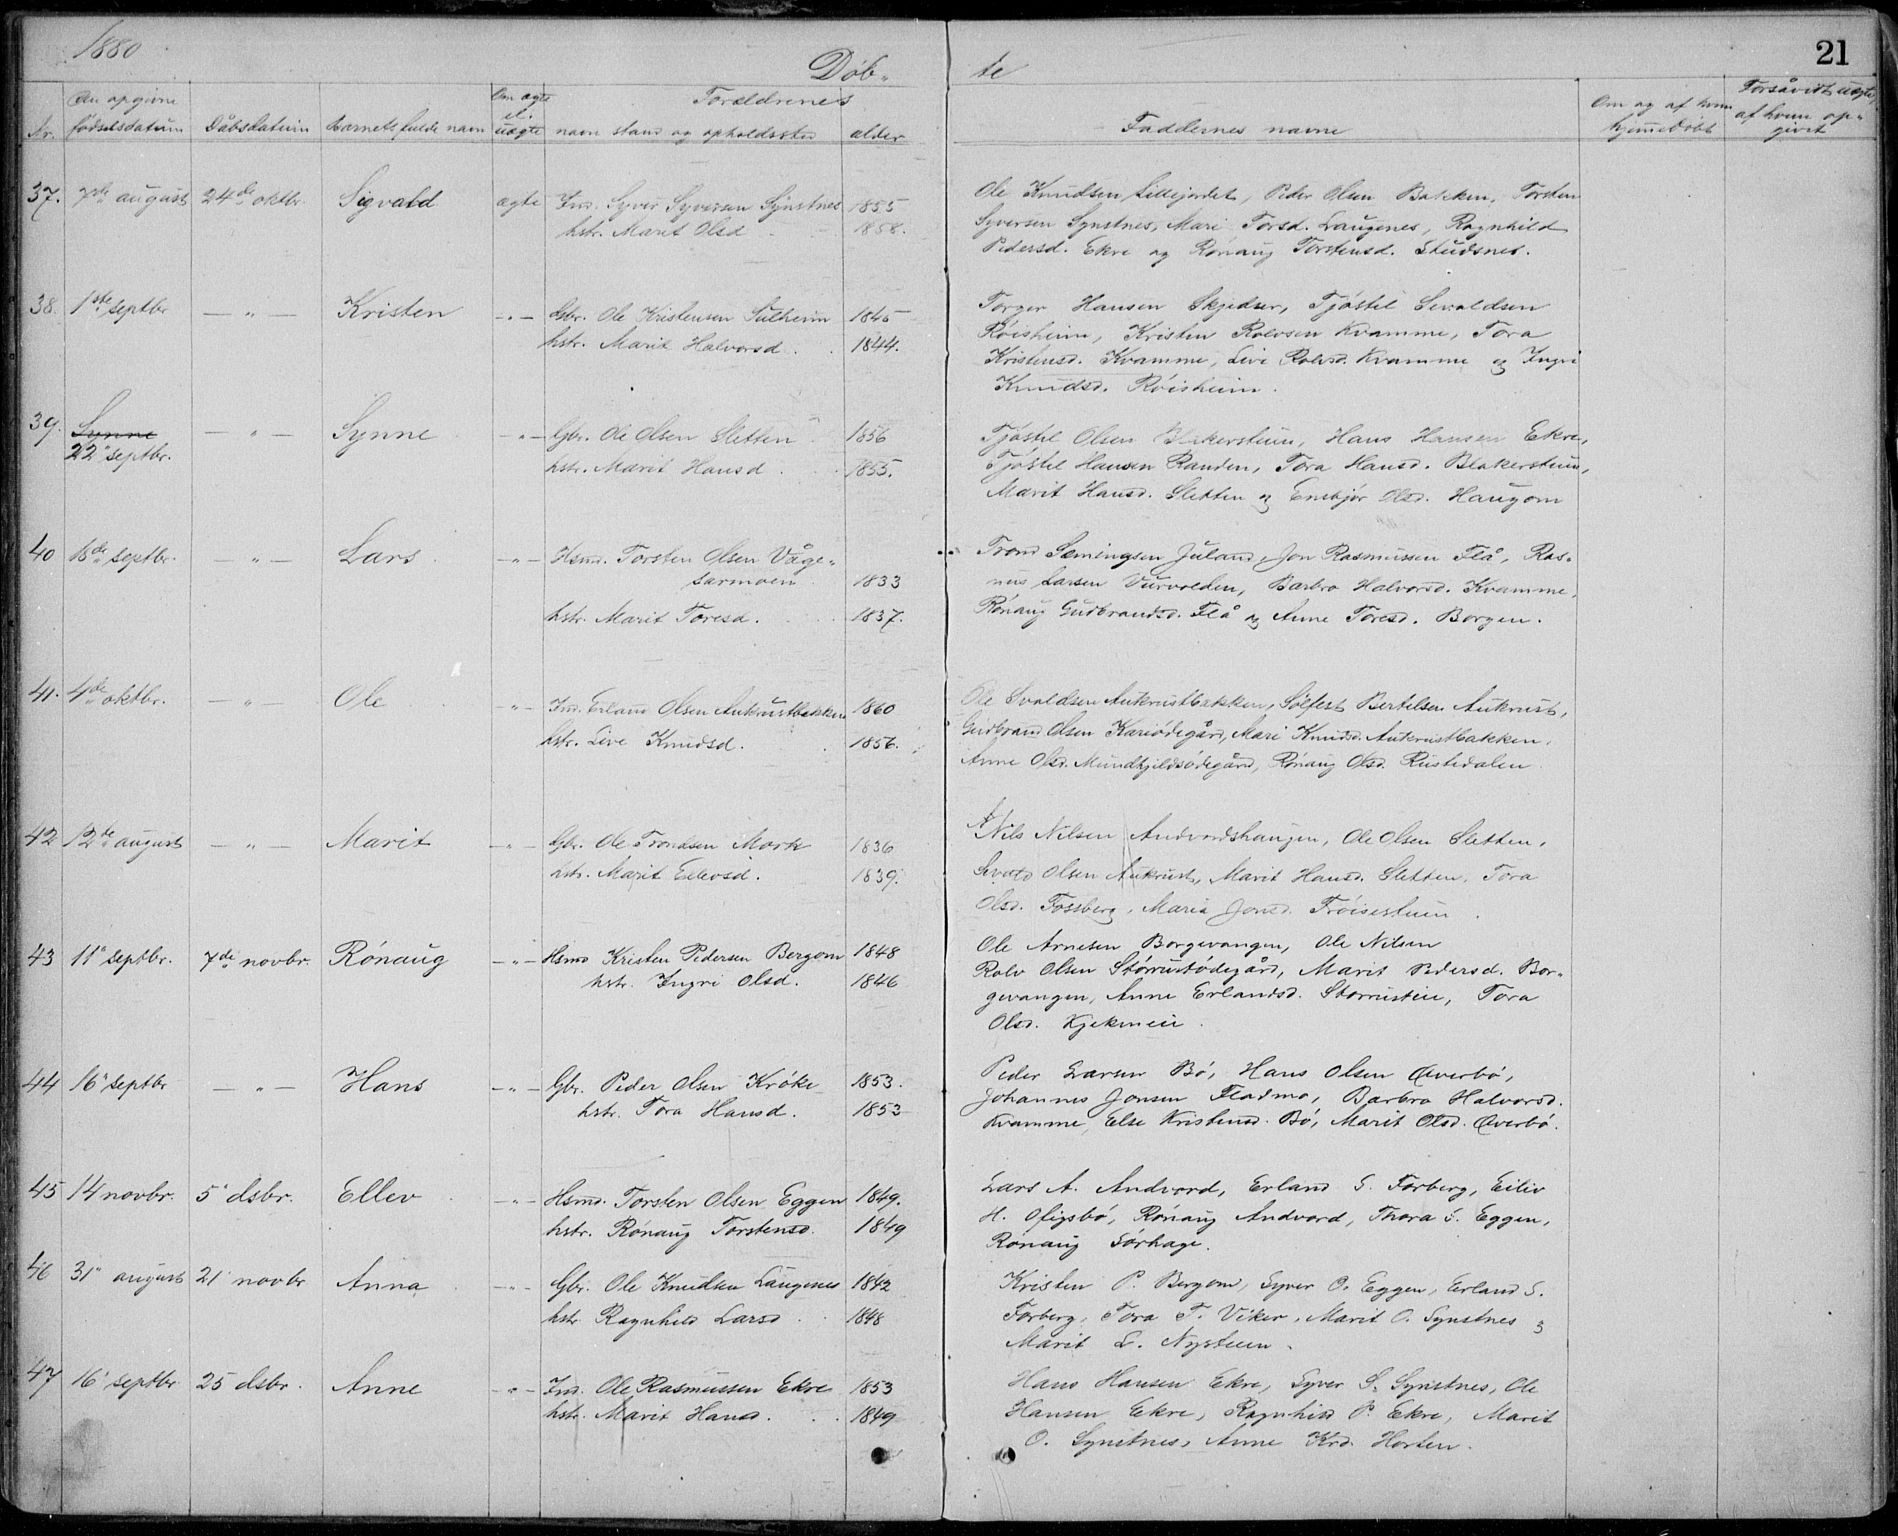 1880
Døb-
te
21
Nr.
Den opgivne fødselsdatum
Dåbsdatum
Barnets fulde navn
Om ægte el. uægte
Forældrenes
navn stand og opholdssted
alder
Faddernes navne
Om og af hvem hjemmedøbt
Forsåvidt uægte, af hvem op- givet
37. 7de august 24de oktbr. Sigvald ægte Ind. Syver Syversen Synstnes 1855
hstr. Marit Olsd 1858.
Ole Knudsen Lillejordet, Peder Olsen Bakken, Torsten
Syversen Synstnes, Mari Torsd. Laugenes, Ragnhild
Pedersd. Ekre og Rønaug Torstensd. Studsnes.
38. 1ste septbr — " — Kristen - " - Gbr. Ole Kristensen Sulheim 1845
hstr. Marit Halvorsd. 1844.
Torger Hansen Skjedser, Tjøstil Sevaldsen
Røisheim, Kristen Rolvsen Kvamme, Tora
Kristensd. Kvamme, Live Rolvsd. Kvamme og Ingri
Knudsd. Røisheim.
39. Synne
22" septbr. — " — Synne - " - Gbr. Ole Olsen Sletten 1856
hstr. Marit Hansd. 1855.
Tjøstil Olsen Blakersteum, Hans Hansen Ekre,
Tjøstil Hansen Randen, Tora Hansd. Blakersteum,
Marit Hansd. Sletten og Ensbjør Olsd. Haugom
40 18de septbr. — " — Lars - " - Hsmd. Torsten Olsen Våge-
sarmoen 1833
hstr. Marit Toresd. 1837.
Trond Semingsen Juland, Jon Rasmussen Flå, Ras-
mus Larsen Vurvolden, Barbro Halvorsd. Kvamme,
Rønaug Gudbrandsd. Flå og Anne Toresd. Borgen.
41. 4de oktbr. — " — Ole - " - Ind. Erland Olsen Aukrustbakken 1860
hstr. Live Knudsd. 1856.
Ole Svaldsen Aukrustbakken, Sølfest Bertelsen Aukrust,
Gudbrand Olsen Kariødegård, Mari Knudsd. Aukrustbakken,
Anne Olsd. Mundhjildsødegård, Rønaug Olsd. Rustedalen.
42 12te august — " — Marit - " - Gbr. Ole Trondsen Mork 1836
hstr. Marit Eilevsd. 1839.
Nils Nilsen Andvordshaugen, Ole Olsen Sletten,
Sevald Olsen Aukrust, Marit Hansd. Sletten, Tora
Olsd. Fossberg, Maria Jonsd. Trøisesteum.
43 11" septbr. 7de novbr. Rønaug - " - Hsmd Kristen Pedersen Bergom 1848
hstr. Ingri Olsd. 1846
Ole Arnesen Borgevangen, Ole Nilsen
Rolv Olsen Storrustødegård, Marit Pedersd. Bor-
gevangen, Anne Erlandsd. Storrusteie, Tora
Olsd. Kjekmeii.
44 16" septbr — " — Hans - " - Gbr. Peder Olsen Krøke 1853.
hstr. Tora Hansd. 1853
Peder Larsen Bø, Hans Olsen Øverbø,
Johannes Jonsen Fladmo, Barbro Halvorsd.
Kvamme, Else Kristensd. Bø, Marit Olsd. Øverbø.
45 14 novbr. 5" dsbr. Ellev - " - Hsmd. Torsten Olsen Eggen 1849.
hstr. Rønaug Torstensd. 1849
Lars A. Andvord, Erland S. Forberg, Eiliv
H. Ofigsbø, Rønaug Andvord, Thora S. Eggen,
Rønaug Sørhage.
46 31" august 21" novbr Anna - " - Gbr. Ole Knudsen Laugenes 1842
hstr Ragnhild Larsd 1848
Kristen P. Bergom, Syver O. Eggen, Erland S.
Forberg, Tora T. Viker, Marit O. Synstnes og
Marit L. Nysteum.
47 16" septbr 25 dsbr. Anne - " - Ind. Ole Rasmussen Ekre 1853
hstr. Marit Hansd. 1849
Hans Hansen Ekre, Syver S. Synstnes, Ole
Hansen Ekre, Ragnhild P. Ekre, Marit
O. Synstnes, Anne Krd. Horten.